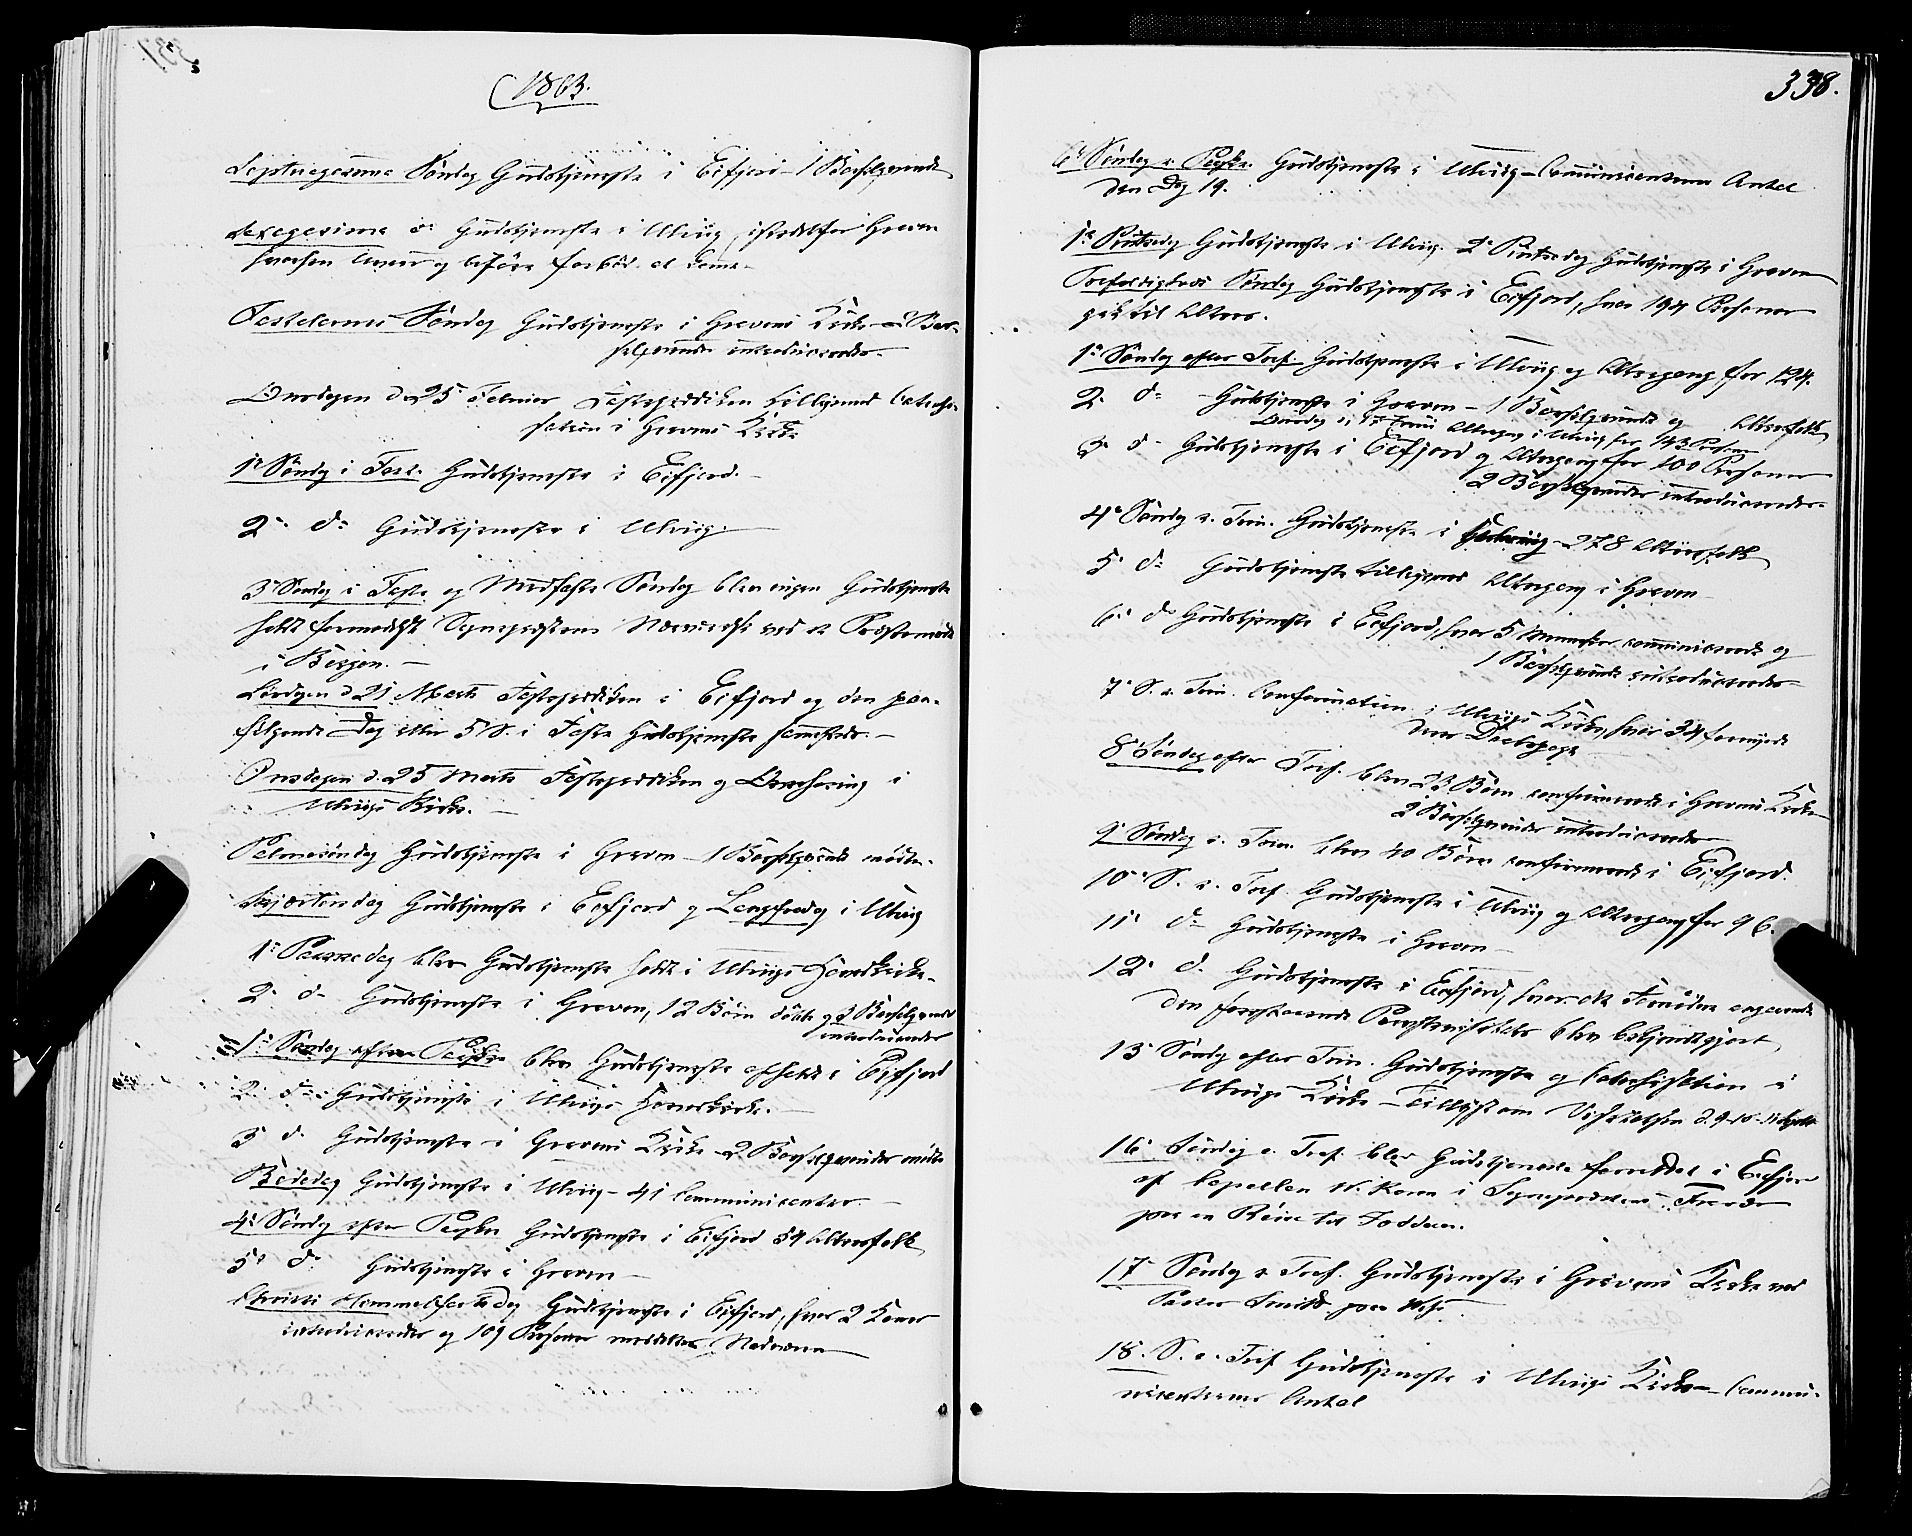 1863.
Septuagesima Søndag Gudstjeneste i Eifjord – 1 Barselqvinde
Sexagesima do Gudstjeneste i Ulvig, istedetfor Graven
Fastelavns Søndag Gudstjeneste i Gravens Kirke – Bar-
selqvinder introduceredes.
Onsdagen den 25 Februar Fasteprædiken tilligemed Catechi-
sation i Gravens Kirke
1ste Søndag i Fast. Gudstjeneste i Eifjord. –
2. do Gudstjeneste i Ulvig. –
3die Søndag i Faste og Midfaste Søndag blev ingen Gudstjeneste
holdt formedelst Sognepræstens Nærværelse ved et Præstemøde
i Bergen. –
Løverdagen d 21 Marts Fasteprædiken i Eifjord og den paa-
følgende Dag eller 5 S. i Faste Gudstjeneste sammesteds. –
Onsdagen d. 25 Marts Fasteprædiken og Overhøring i
Ulvigs Kirke. –
Palmesøndag Gudstjeneste i Graven – 1 Barselqvinde mødte.
Skjærtorsdag Gudstjeneste i Eifjord og Langfredag i Ulvig
1ste Paaskedag blev Gudstjeneste holdt i Ulvigs Hovedkirke.
2. d– Gudstjeneste i Graven, 12 Børn døbte og 3 Barselqvinder
introduceredes
1ste Søndag efter Paaske blev Gudstjeneste afholdt i Eifjord
2. do Gudstjeneste i Ulvigs Hovedkirke. –
3 d. Gudstjeneste i Gravens Kirke – 2 Barselqvinder mødte
Bededag Gudstjeneste i Ulvig – 41 Communicanter. –
4de Søndag efter Paaske Gudstjeneste i Eifjord 54 Altersfolk
5te do Gudstjeneste i Graven –
Christi Himmelfartsdag Gudstjeneste i Eifjord, hvor 2 Koner
introduceredes og 109 Personer meddeltes Nadveren –
338.
6te Søndag e. Paaske. Gudstjeneste i Ulvig – Communicanternes Antal
den Dag 19.
1ste Pintsedag Gudstjeneste i Ulvig. 2den Pintsedag Gudstjeneste i Graven
Trefoldigheds Søndag Gudstjeneste i Eifjord, hvor 194 Personer
gik til Alters.
1ste Søndag efter Tref. Gudstjeneste i Ulvig og Altergang for 124.
2. do – Gudstjeneste i Graven – 1 Barselqvinde og Altersfolk
Altergang i Ulvig for 143 Personer
3 d– Gudstjeneste i Eifjord og Altergang for 100 Personer
2 Barselqvinder introduceredes.
4de Søndag e. Trin. Gudstjeneste i – 278 Altersfolk
5te do Gudstjeneste tilligemed Altergang i Graven
6te do Gudstjeneste i Eifjord, hvor 5 Mennesker communicerede og
1 Barselqvinde introduceredes –
7de S. e. Trin. Confirmation i Ulvigs Kirke, hvor 34 fornyede
deres Daabspagt
8de Søndag efter Tref. blev 23 Børn confirmerede i Gravens Kirke
2 Barselqvinder introduceredes
9de Søndag e. Trin. blev 40 Børn confirmerede i Eifjord.
10de S. e. Tref. Gudstjeneste i Ulvig og Altergang for 96.
11te do Gudstjeneste i Graven –
12te d. Gudstjeneste i Eifjord, hvor angaaende
den forestaaende blev bekjendtgjort
13de Søndag efter Trin. Gudstjeneste og Catechisation i
Ulvigs Kirke – Tillyst om Visitatsen d. 9–10–11 Septbr
16de Søndag e. Tref. blev Gudstjeneste forrettet i Eifjord
af Capellan i Sognepræstens Fravær
paa en Reise til
17de Søndag e. Tref. Gudstjeneste i Gravens Kirke ved
Pastor Smith paa
18. S. e. Tref. Gudstjeneste i Ulvigs Kirke – Commu-
nicanternes Antal